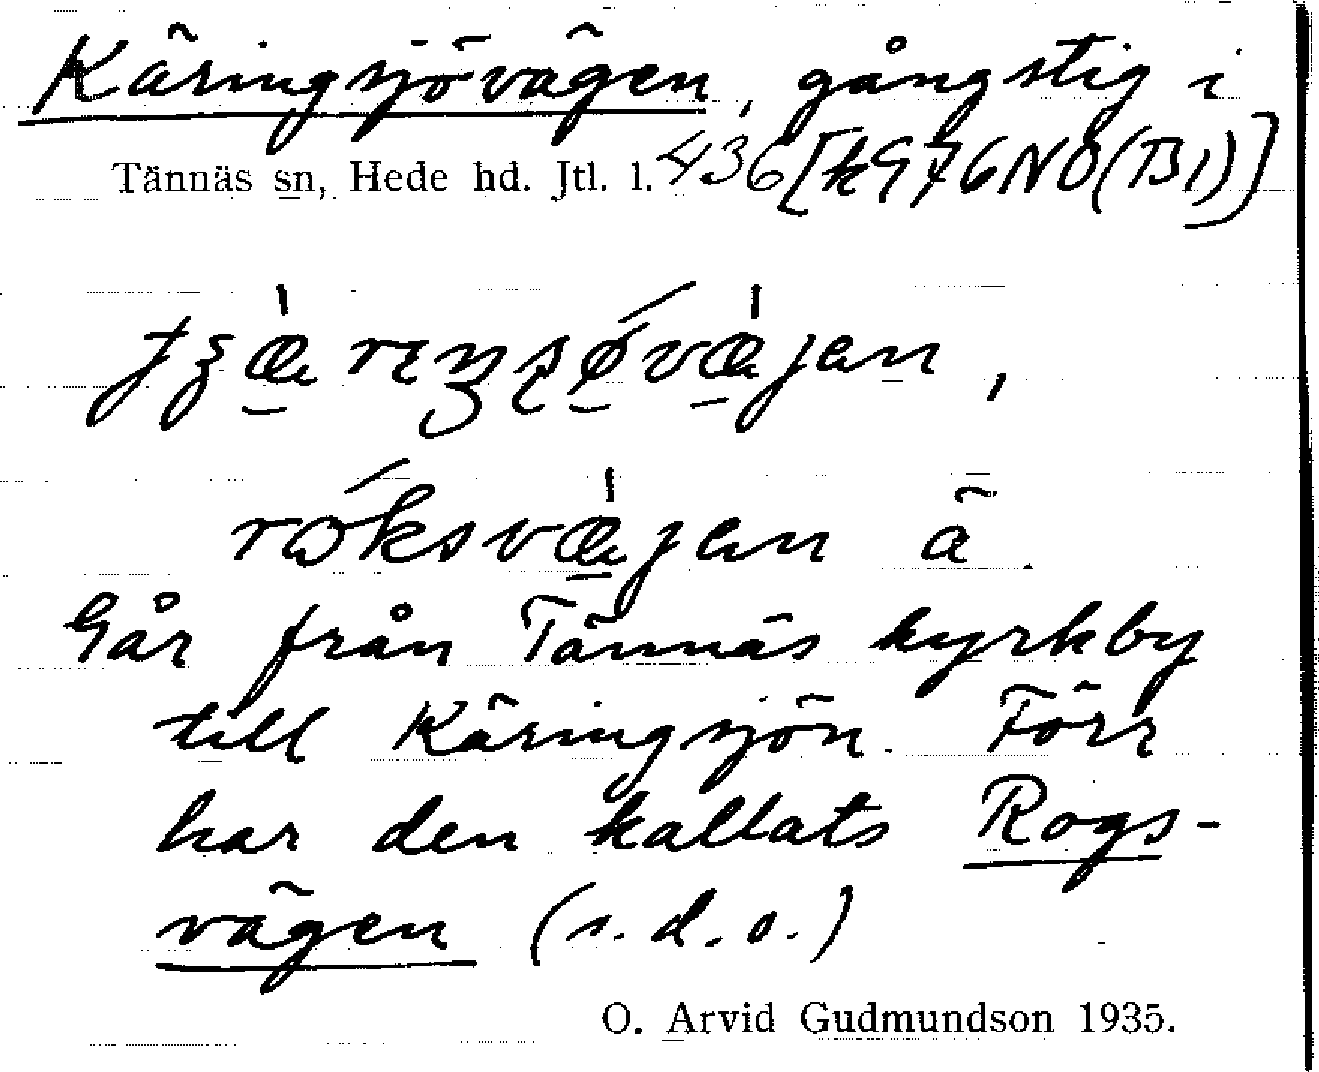 Käringsjövägen, gångstig i
Tännäs sn, Hede hd. Jtl. l. 436 [k976NO(B1)]
ȷ
röksvæ̀jen ä.
Går från Tännäs kyrkby
till Käringsjön. Förr
har den kallats Rogs-
vägen (s.d.o.)
O. Arvid Gudmundson 1935.